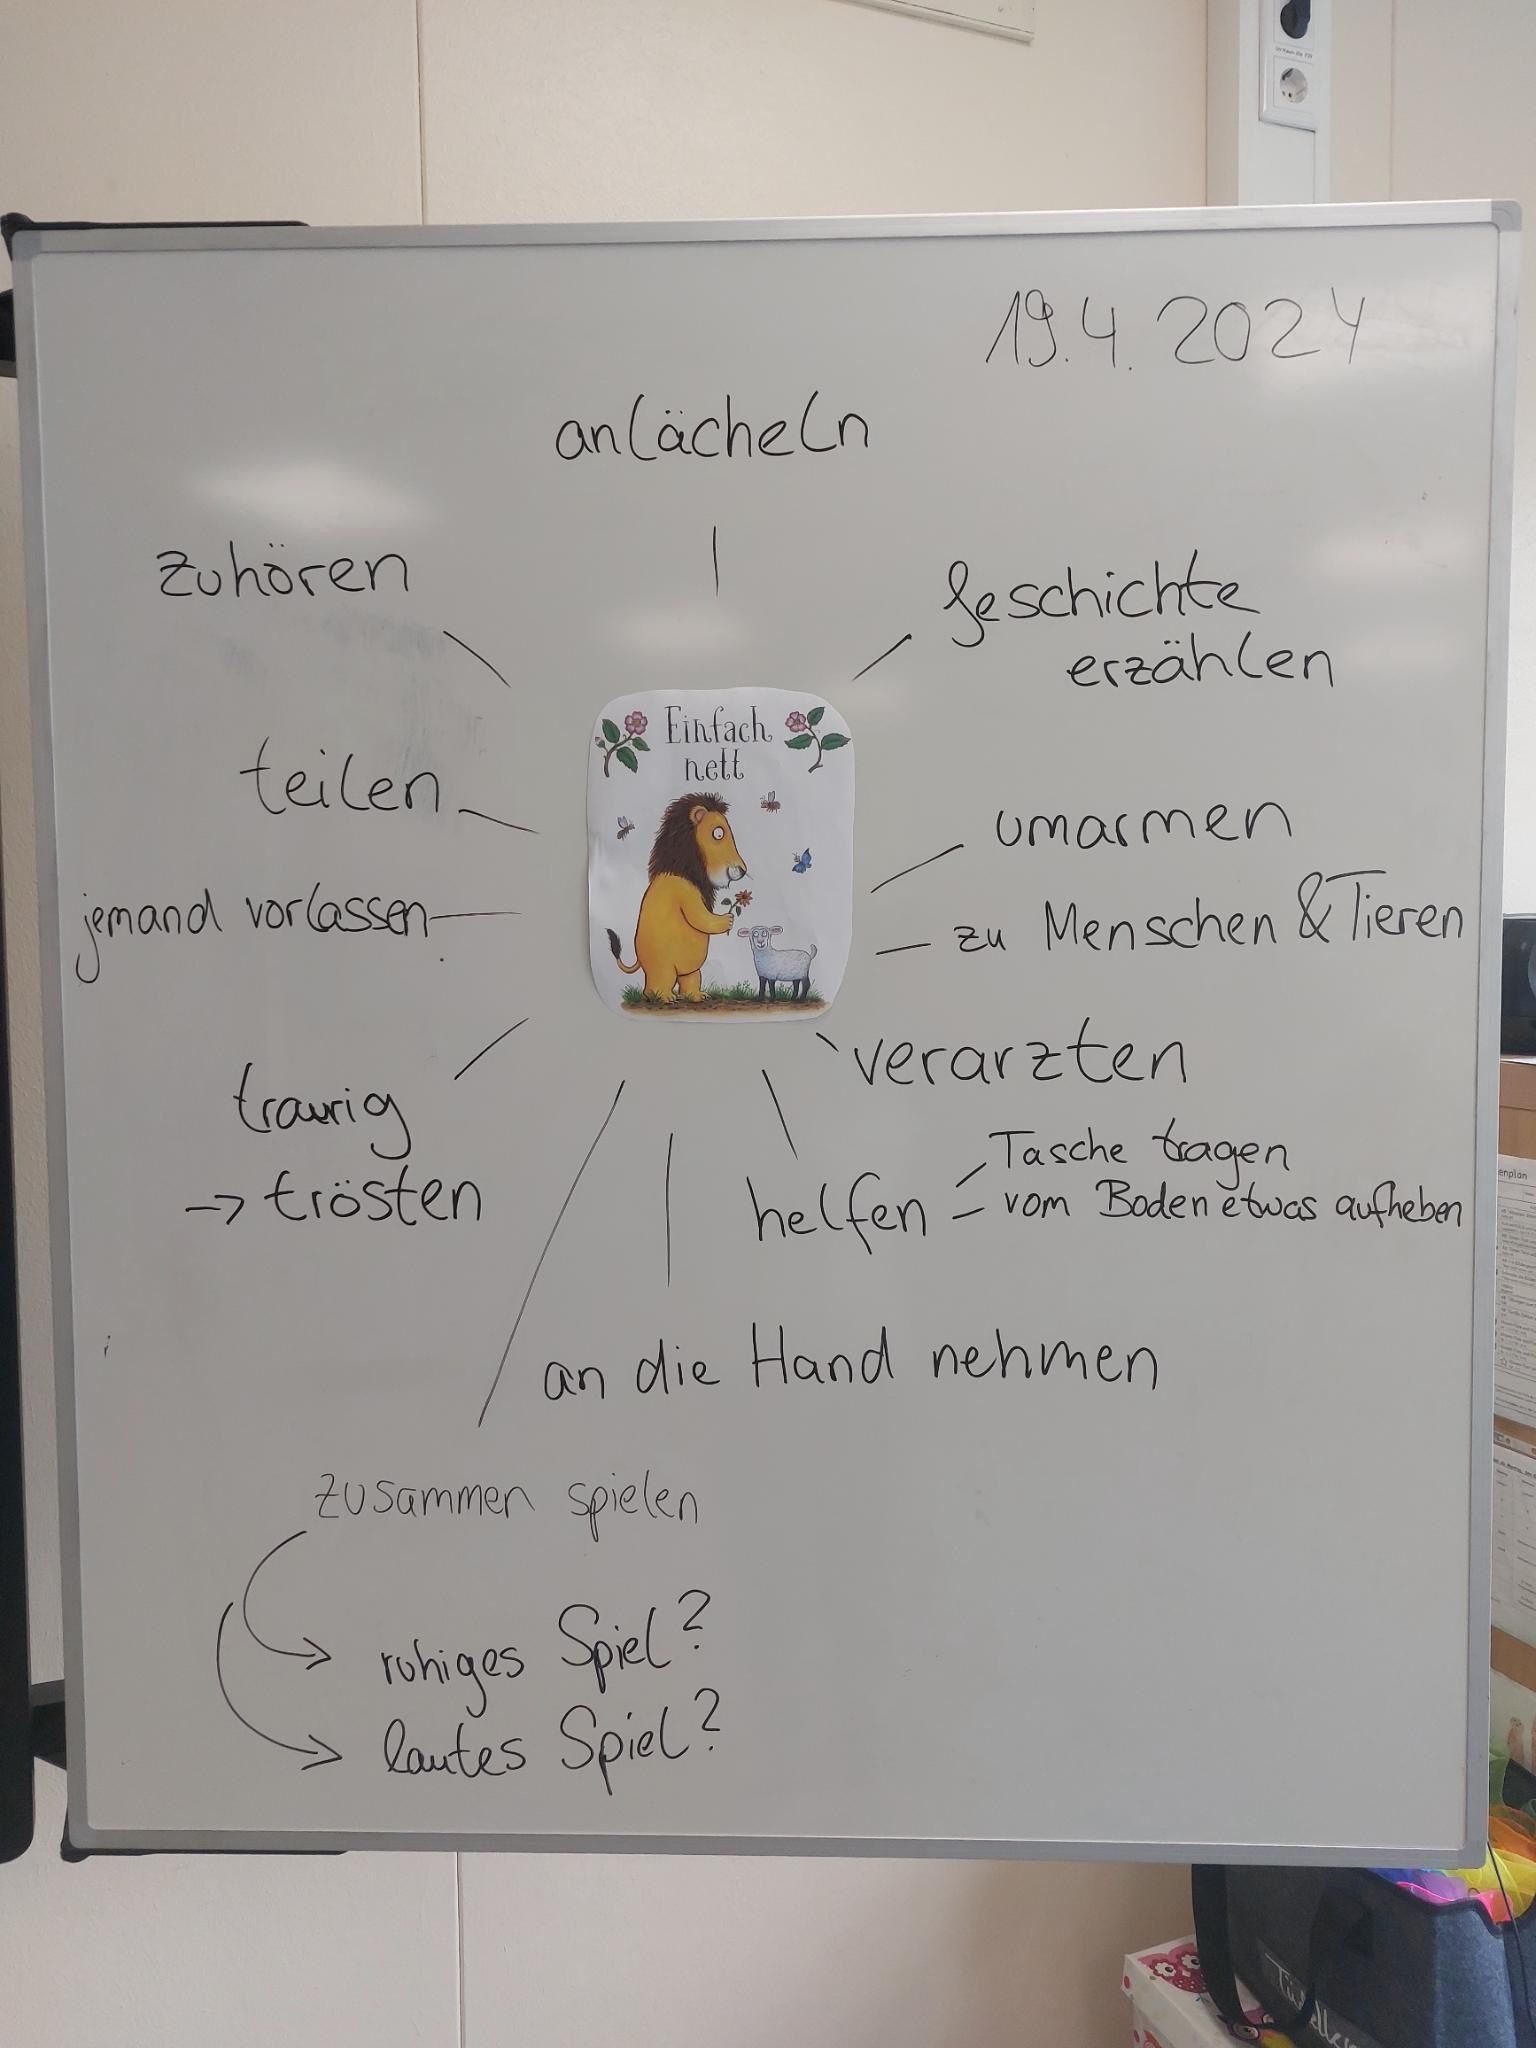 19.4.2024
anlächeln
zuhören
Geschichte
erzählen
Einfach
nett
teilen
umarmen
jemand vorlassen
zu Menschen & Tieren
verarzten
traurig
→ trösten
helfen
Tasche tragen
vom Boden etwas aufheben
an die Hand nehmen
zusammen spielen
ruhiges Spiel?
lautes Spiel?